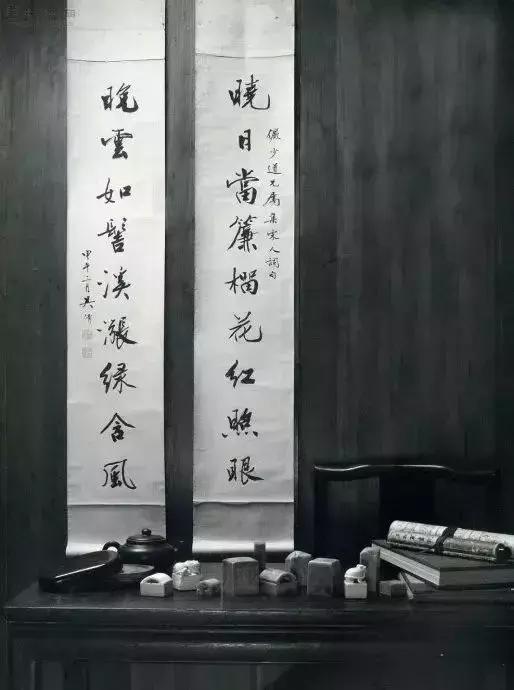 曉日當簾榴花紅照眼
儼少道兄屬集宋人詞句
晚雲如髻溪漲綠含風
甲午二月吳倩